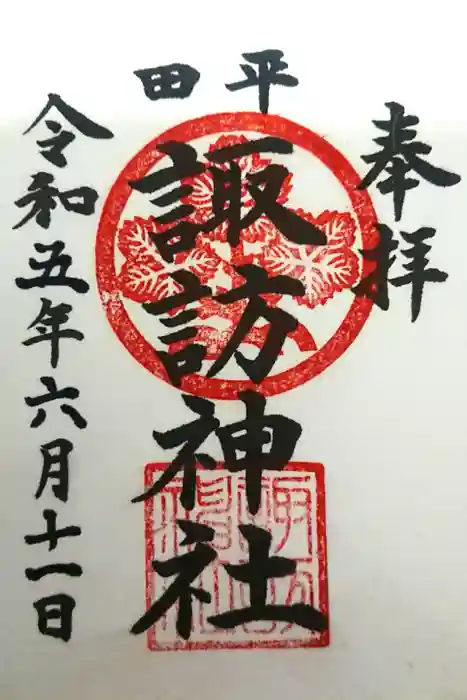 奉拝
平田
諏訪神社
令和五年六月十一日